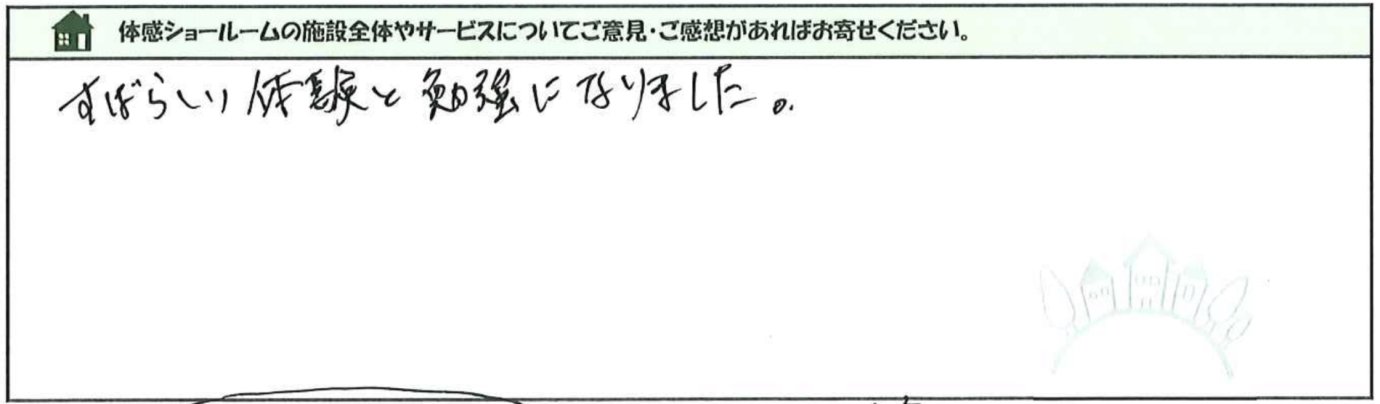 体感ショールームの施設全体やサービスについてご意見・ご感想があればお寄せください。
すばらしい体験と勉強になりました。